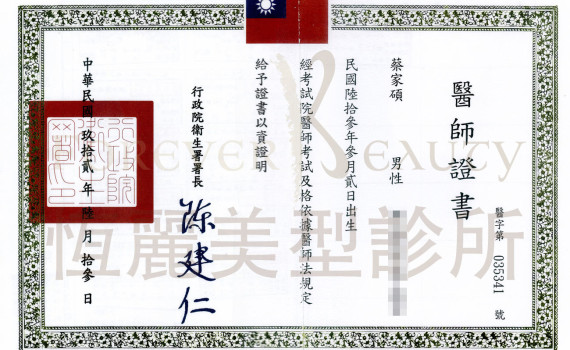 醫師證書
醫字第 035341 號
蔡家碩 男性
民國陸拾參年參月貳日出生
經考試院醫師考試及格依據醫師法規定
給予證書以資證明
行政院衛生署署長
陳建仁
中華民國玖拾貳年陸月拾參日
行政院衛生署印
FOREVER BEAUTY
恆麗美型診所